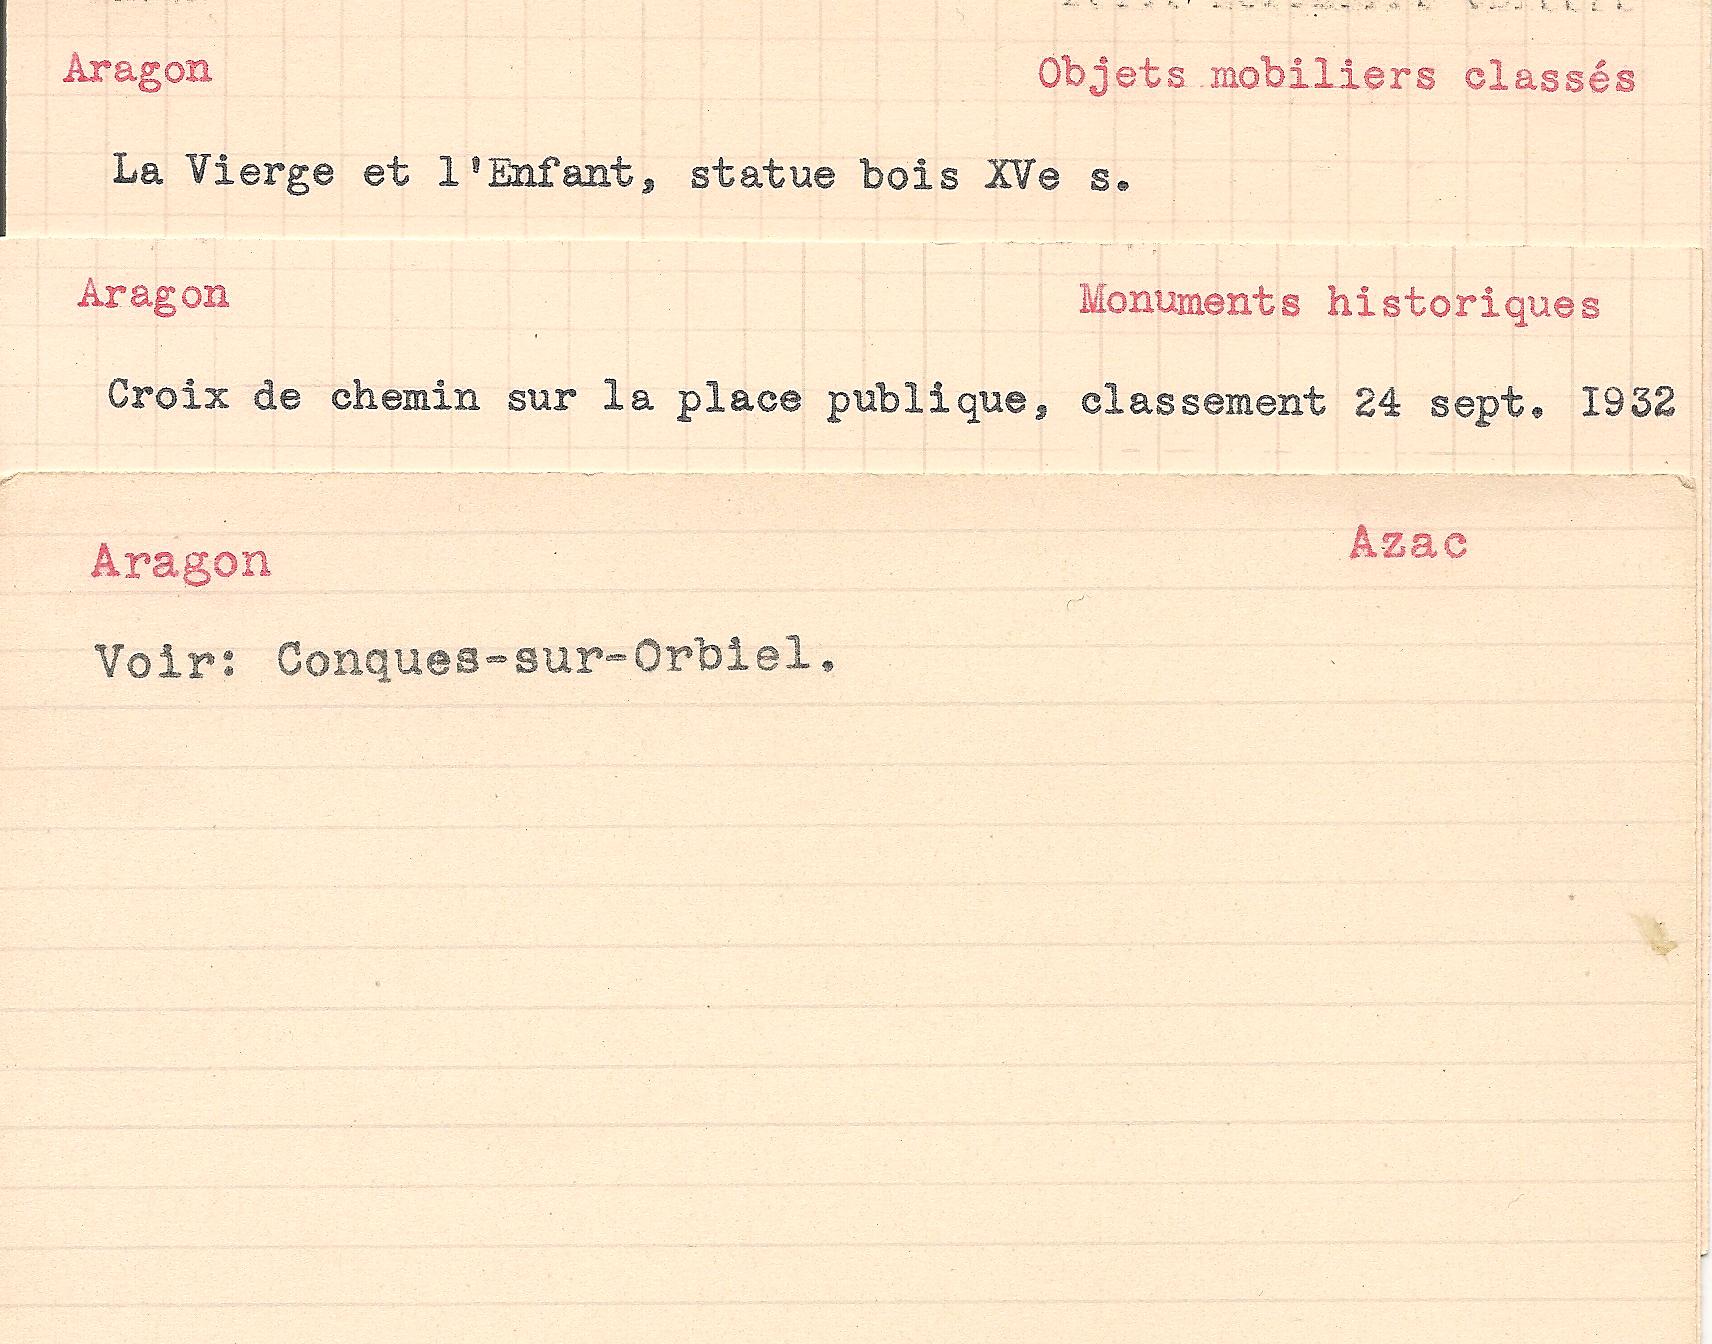 Aragon Objets mobiliers classés
La Vierge et l'Enfant, statue bois XVe s.
Aragon Monuments historiques
Croix de chemin sur la place publique, classement 24 sept. I932
Aragon Azac
Voir: Conques-sur-Orbiel.